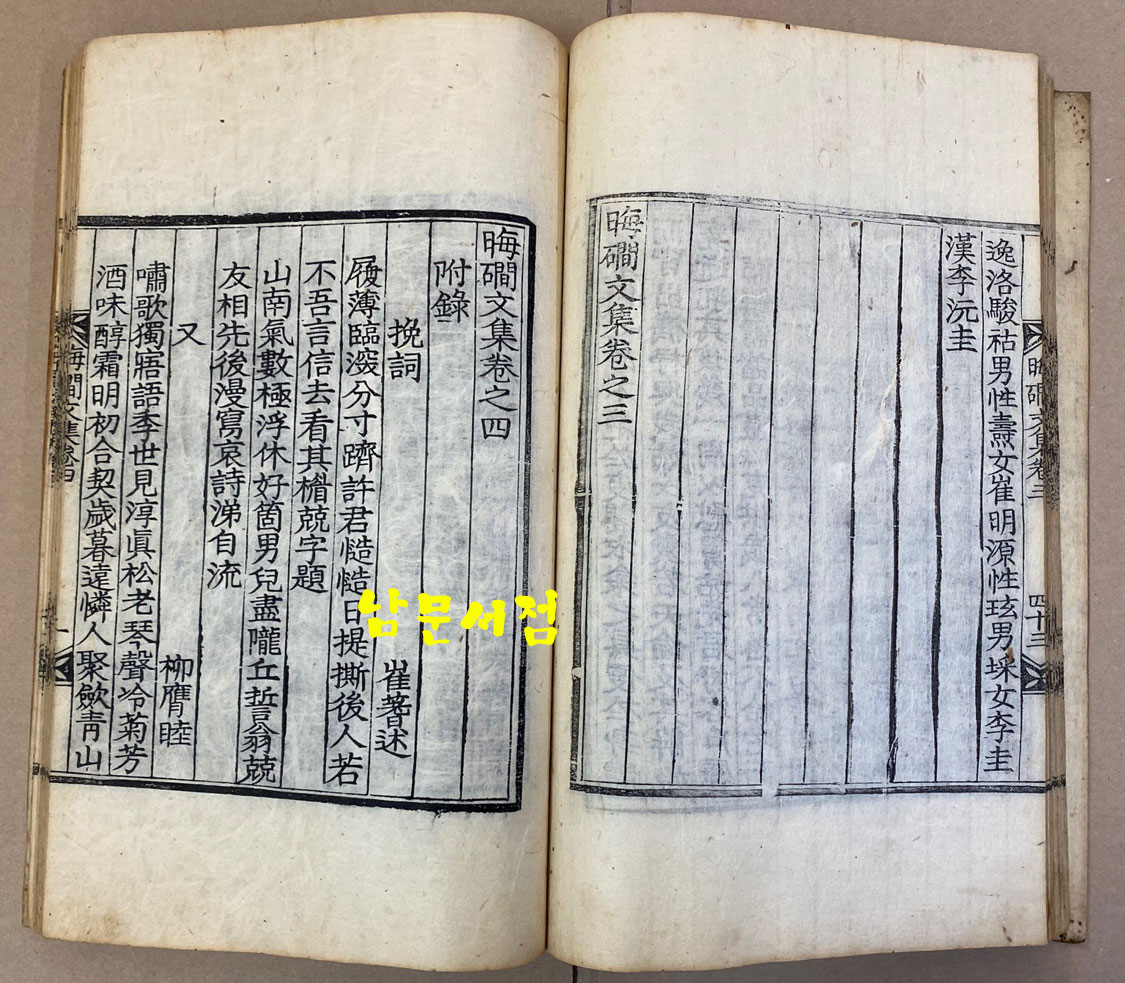 逸洛駿祜男性燾女崔明源性玹男埰女李圭
漢李沅圭
晦磵文集卷之三
晦磵文集卷三
四十三
晦磵文集卷之四
附錄
挽詞
崔蓍述
履薄臨深分寸躋許君慥慥日提撕後人若
不吾言信去看其楣兢字題
山南氣數極浮休好箇男兒盡隴丘誓翁兢
友相先後漫寫哀詩涕自流
又
柳膺睦
嘯歌獨寤語李世見淳眞松老琴聲冷菊芳
酒味醇霜明初合契歲暮遠憐人聚歛靑山
晦磵文集卷四
一
남문서점